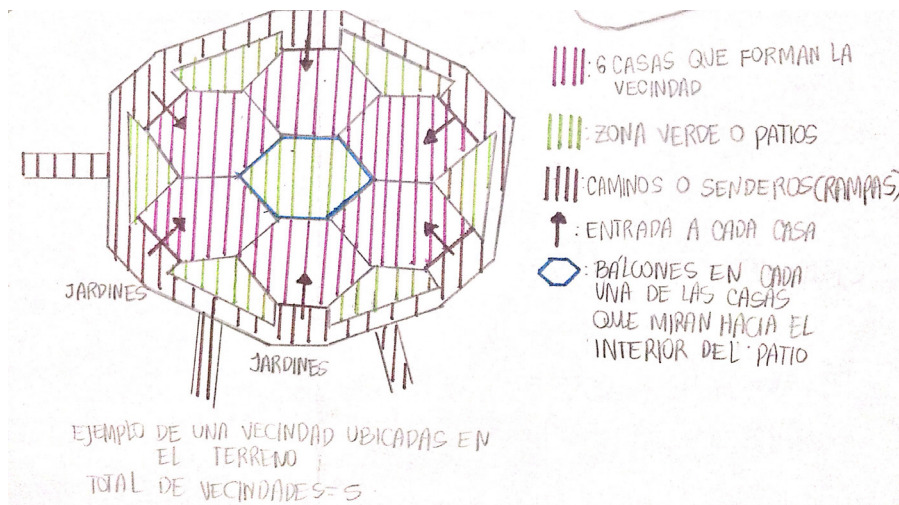 : 6 CASAS QUE FORMAN LA
VECINDAD
: ZONA VERDE O PATIOS
: CAMINOS O SENDEROS(RAMPAS)
: ENTRADA A CADA CASA
: BALCONES EN CADA
UNA DE LAS CASAS
QUE MIRAN HACIA EL
INTERIOR DEL PATIO
JARDINES
JARDINES
EJEMPLO DE UNA VECINDAD UBICADAS EN
EL TERRENO
TOTAL DE VECINDADES=5